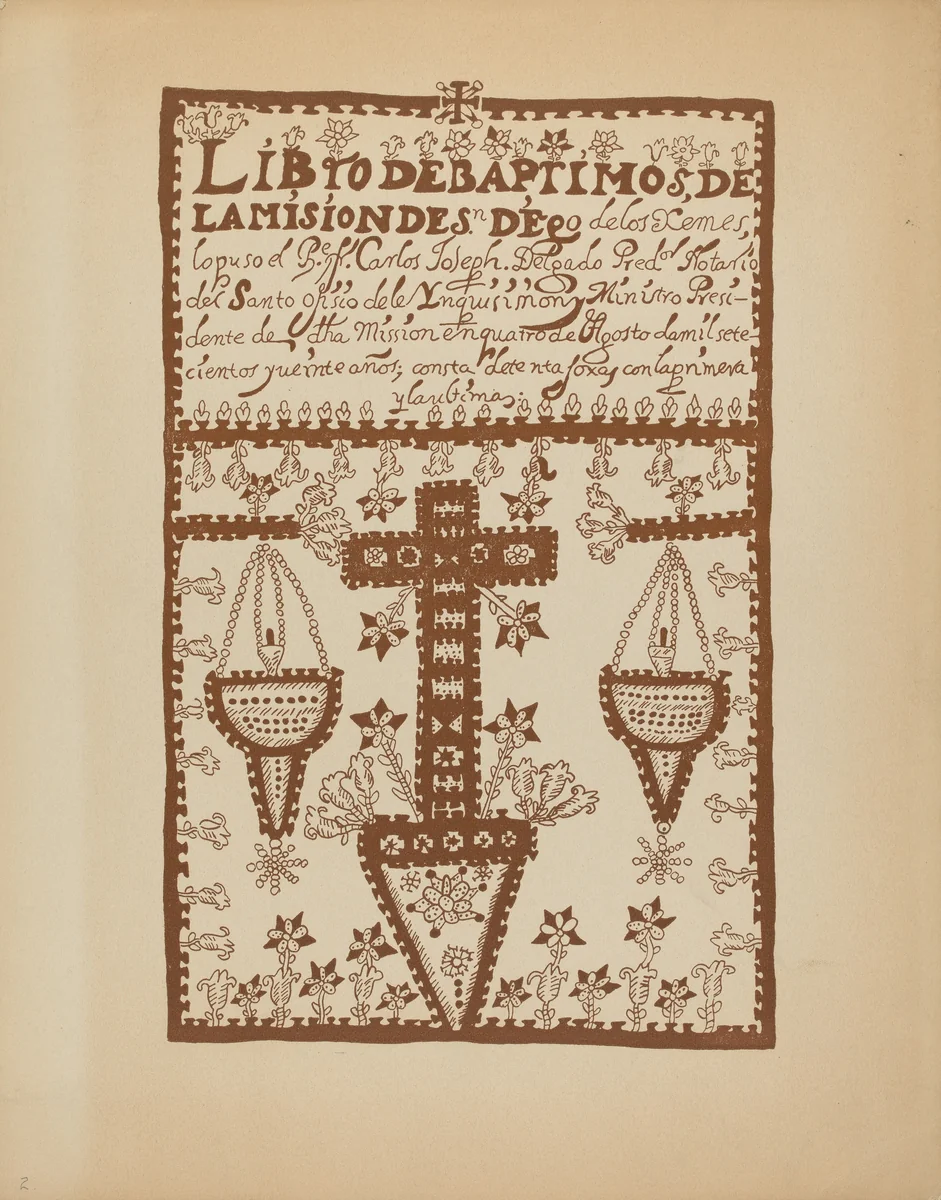 LIBro DE BAPTIMOS, DE
LA MISION DE Sn. DIEgo de los Xemes,
lo puso el Pe. fr. Carlos Joseph. Delgado Predor Notario
del Santo ofisio de le Ynquisision, y Ministro Presi-
dente de dha Mission en quatro de Agosto da mil sete-
cientos y veinte años; consta de te nta foxas con la primera
y la ultima:
2